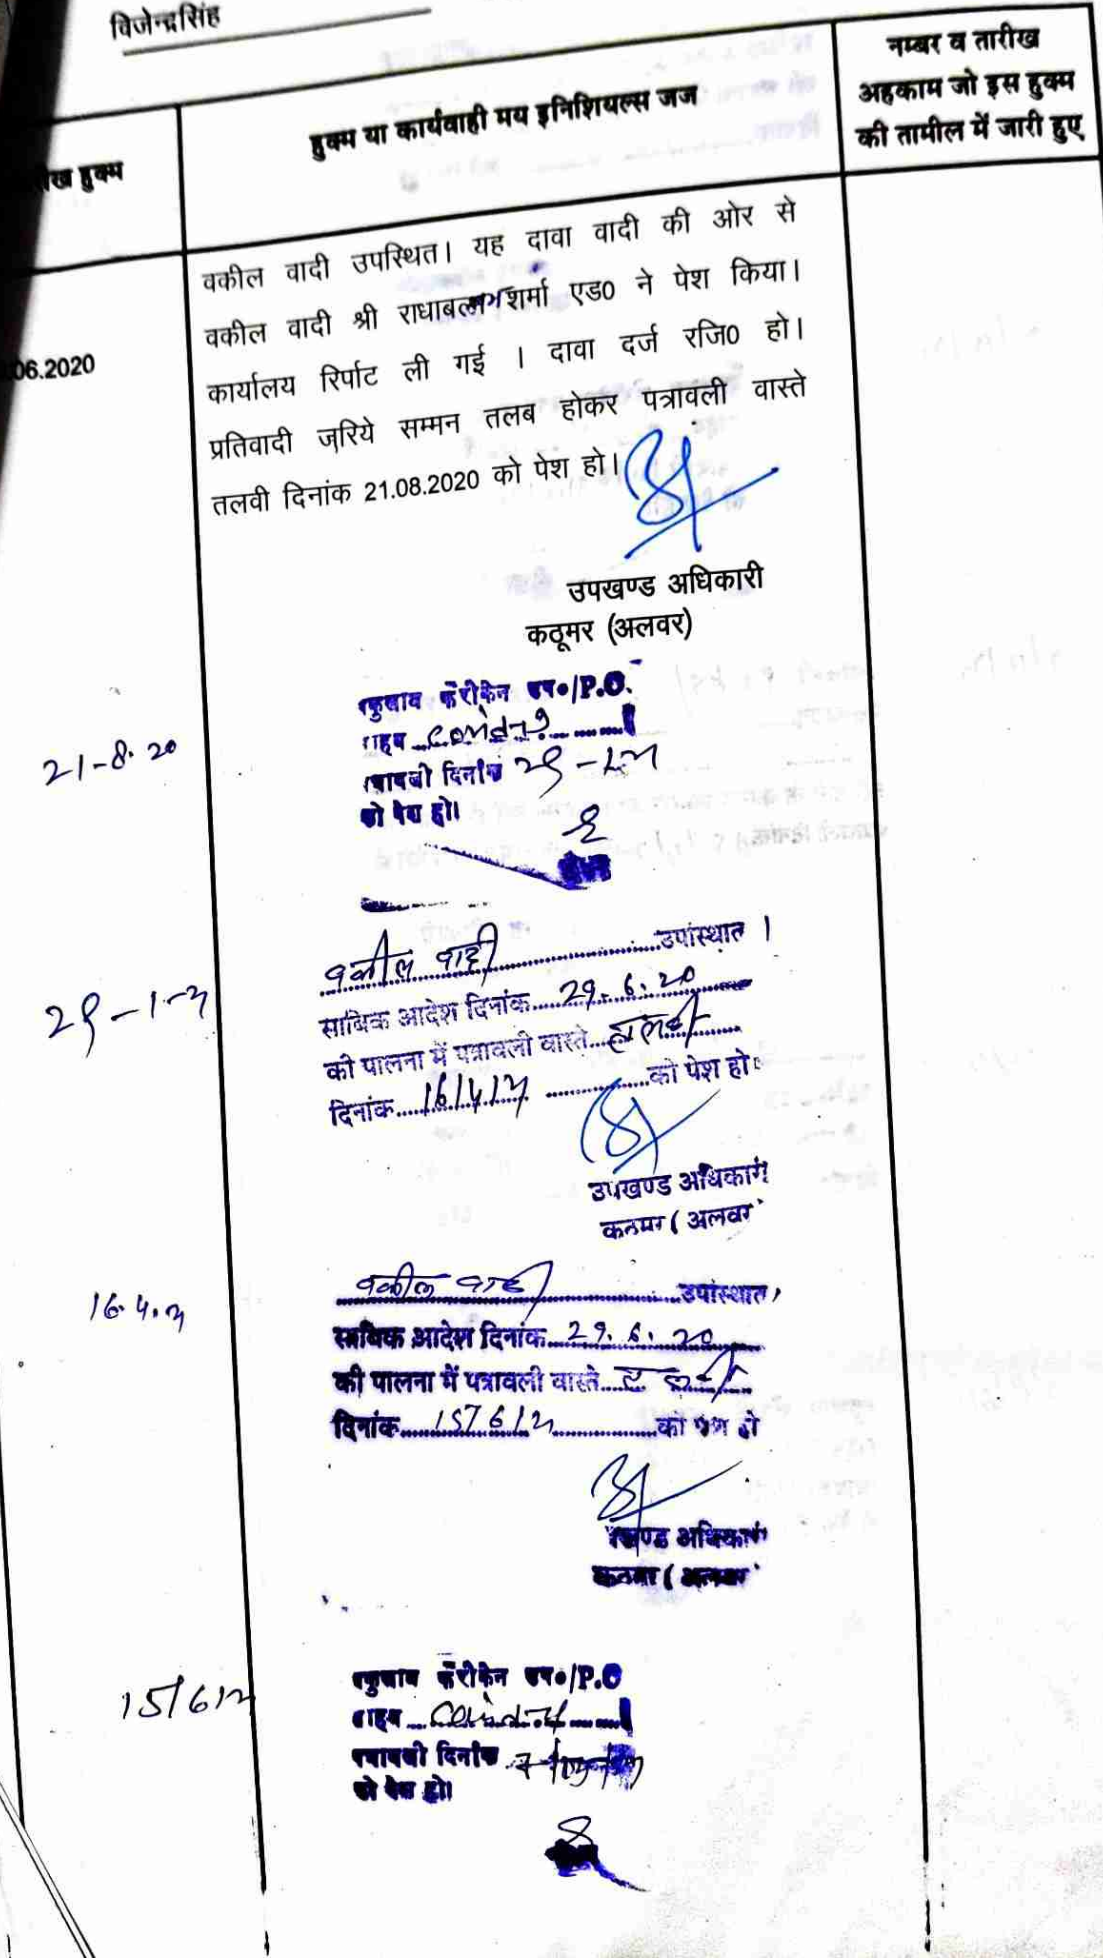 विजेन्द्रसिंह
ीख हुक्म
हुक्म या कार्यवाही मय इनिशियल्स जज
नम्बर व तारीख
अहकाम जो इस हुक्म
की तामील में जारी हुए
06.2020
वकील वादी उपस्थित। यह दावा वादी की ओर से
वकील वादी श्री राधाबल्लभ शर्मा एड० ने पेश किया।
कार्यालय रिर्पाट ली गई । दावा दर्ज रजि० हो।
प्रतिवादी ज़रिये सम्मन तलब होकर पत्रावली वास्ते
तलवी दिनांक 21.08.2020 को पेश हो।
उपखण्ड अधिकारी
कठूमर (अलवर)
21-8-20
फॅरीकेन उप०/P.O.
Covid-19
दिनांक 29-1-21
को पेश हो।
29-1-21
वकील वादी उपस्थित ।
साबिक आदेश दिनांक 29.6.20
की पालना में पत्रावली वास्ते तलवी
दिनांक 16/4/21 को पेश हो।
उपखण्ड अधिकारी
कठूमर (अलवर
16.4.21
वकील वादी उपस्थित।
साबिक आदेश दिनांक 29.6.20
की पालना में पत्रावली वास्ते तलवी
दिनांक 15/6/21 को पेश हो
खण्ड अधिकारी
कठूमर (अलवर
15/6/21
फॅरीकेन उप०/P.O
दिनांक
को पेश हो।